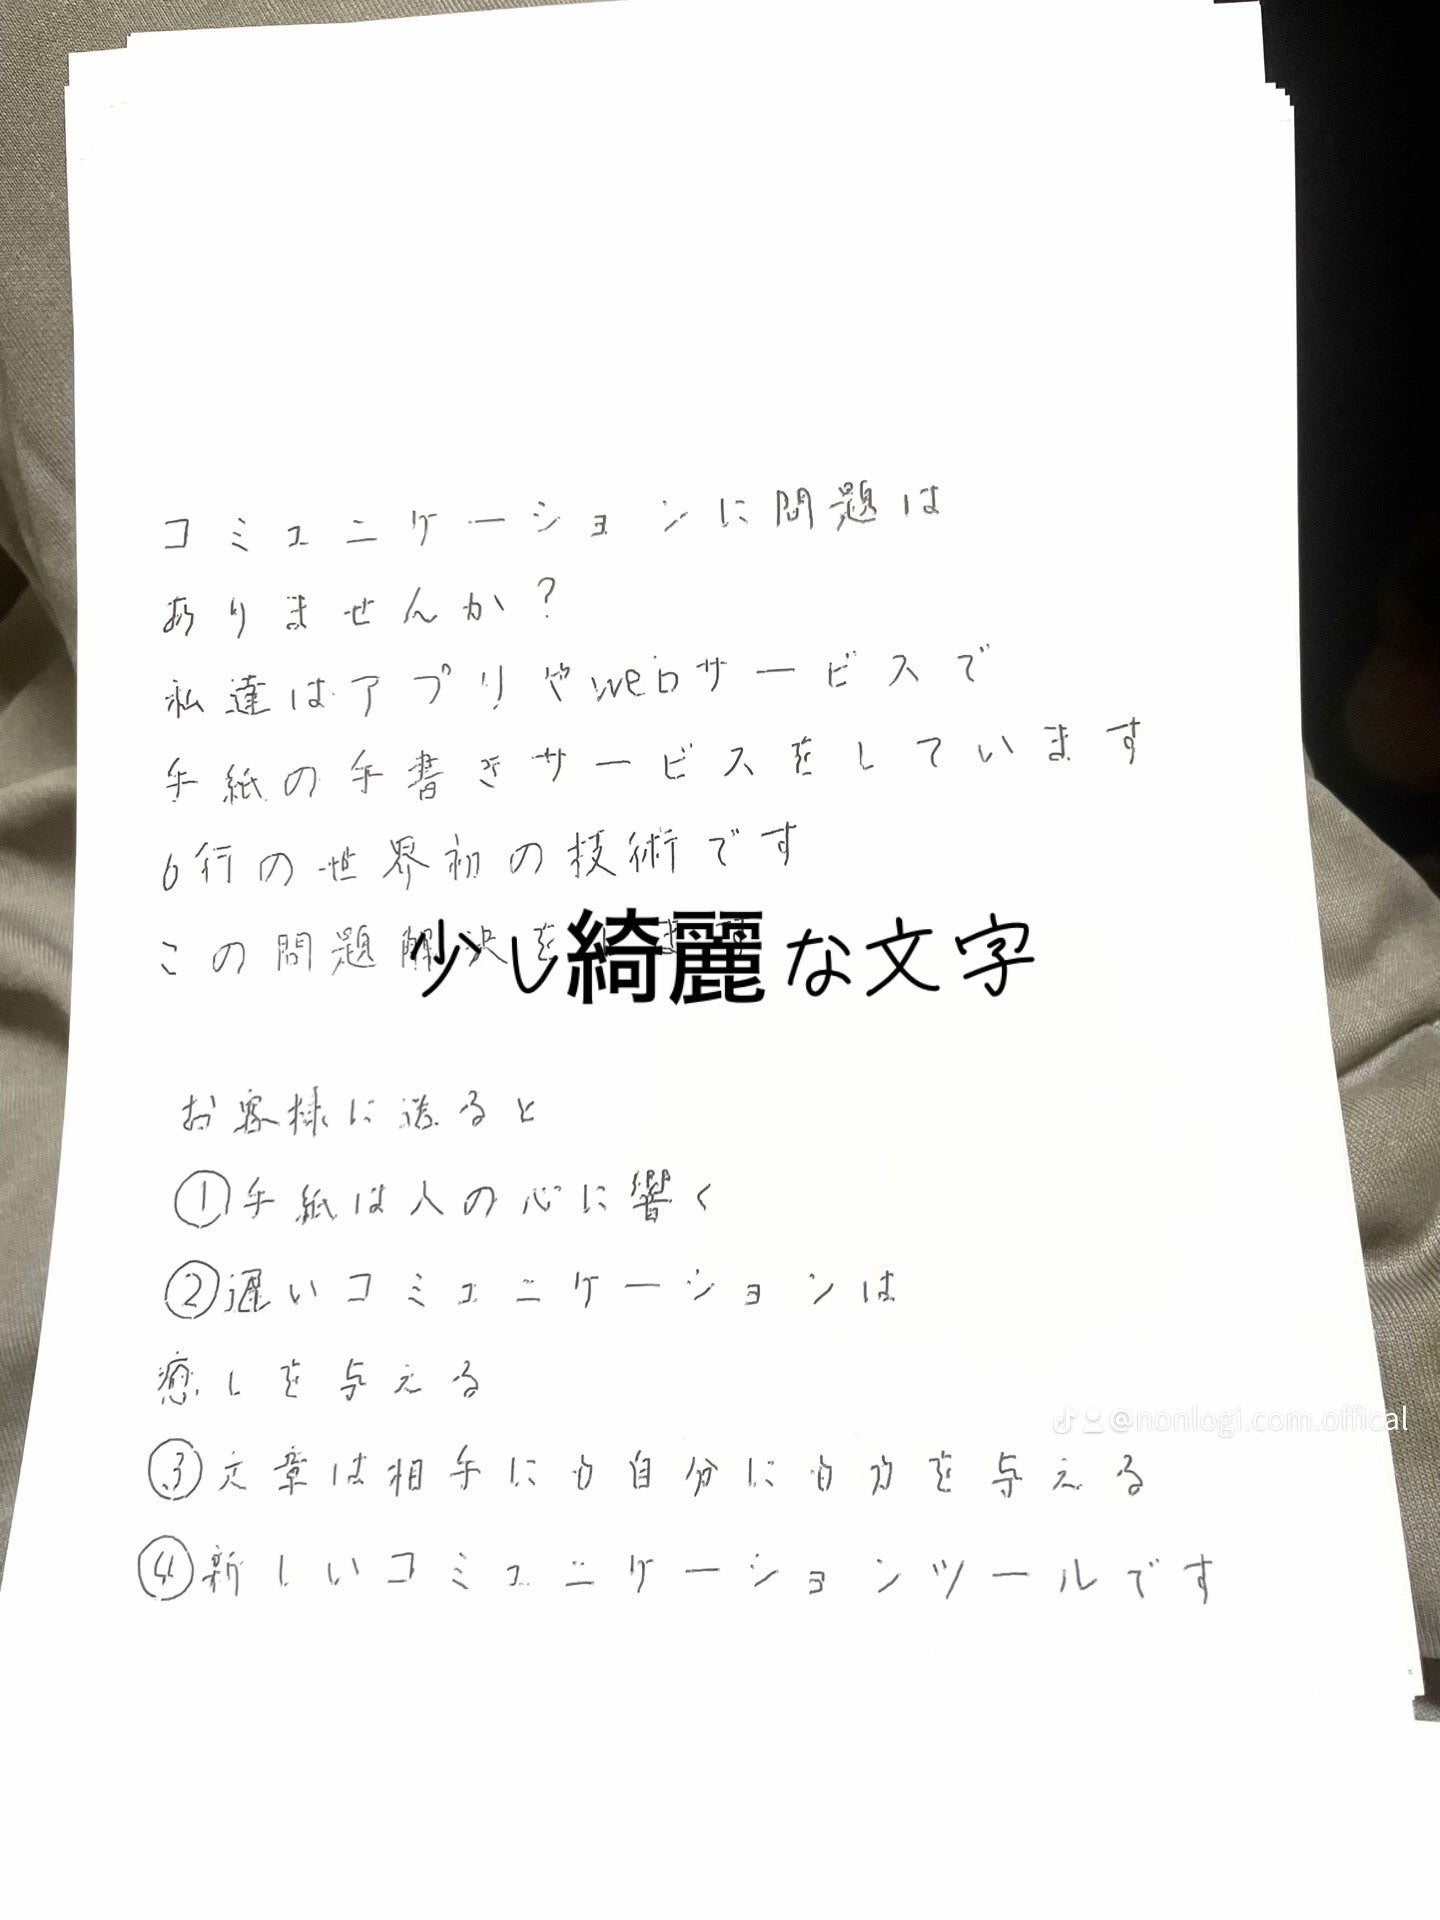 コミュニケーションに問題は
ありませんか?
私達はアプリやwebサービスで
手紙の手書きサービスをしています
6行の世界初の技術です
この問題解決を
少し綺麗な文字
お客様に送ると
①手紙は人の心に響く
②遅いコミュニケーションは
癒しを与える
@nonlogi.com.offical
③文章は相手にも自分にも力を与える
④新しいコミュニケーションツールです